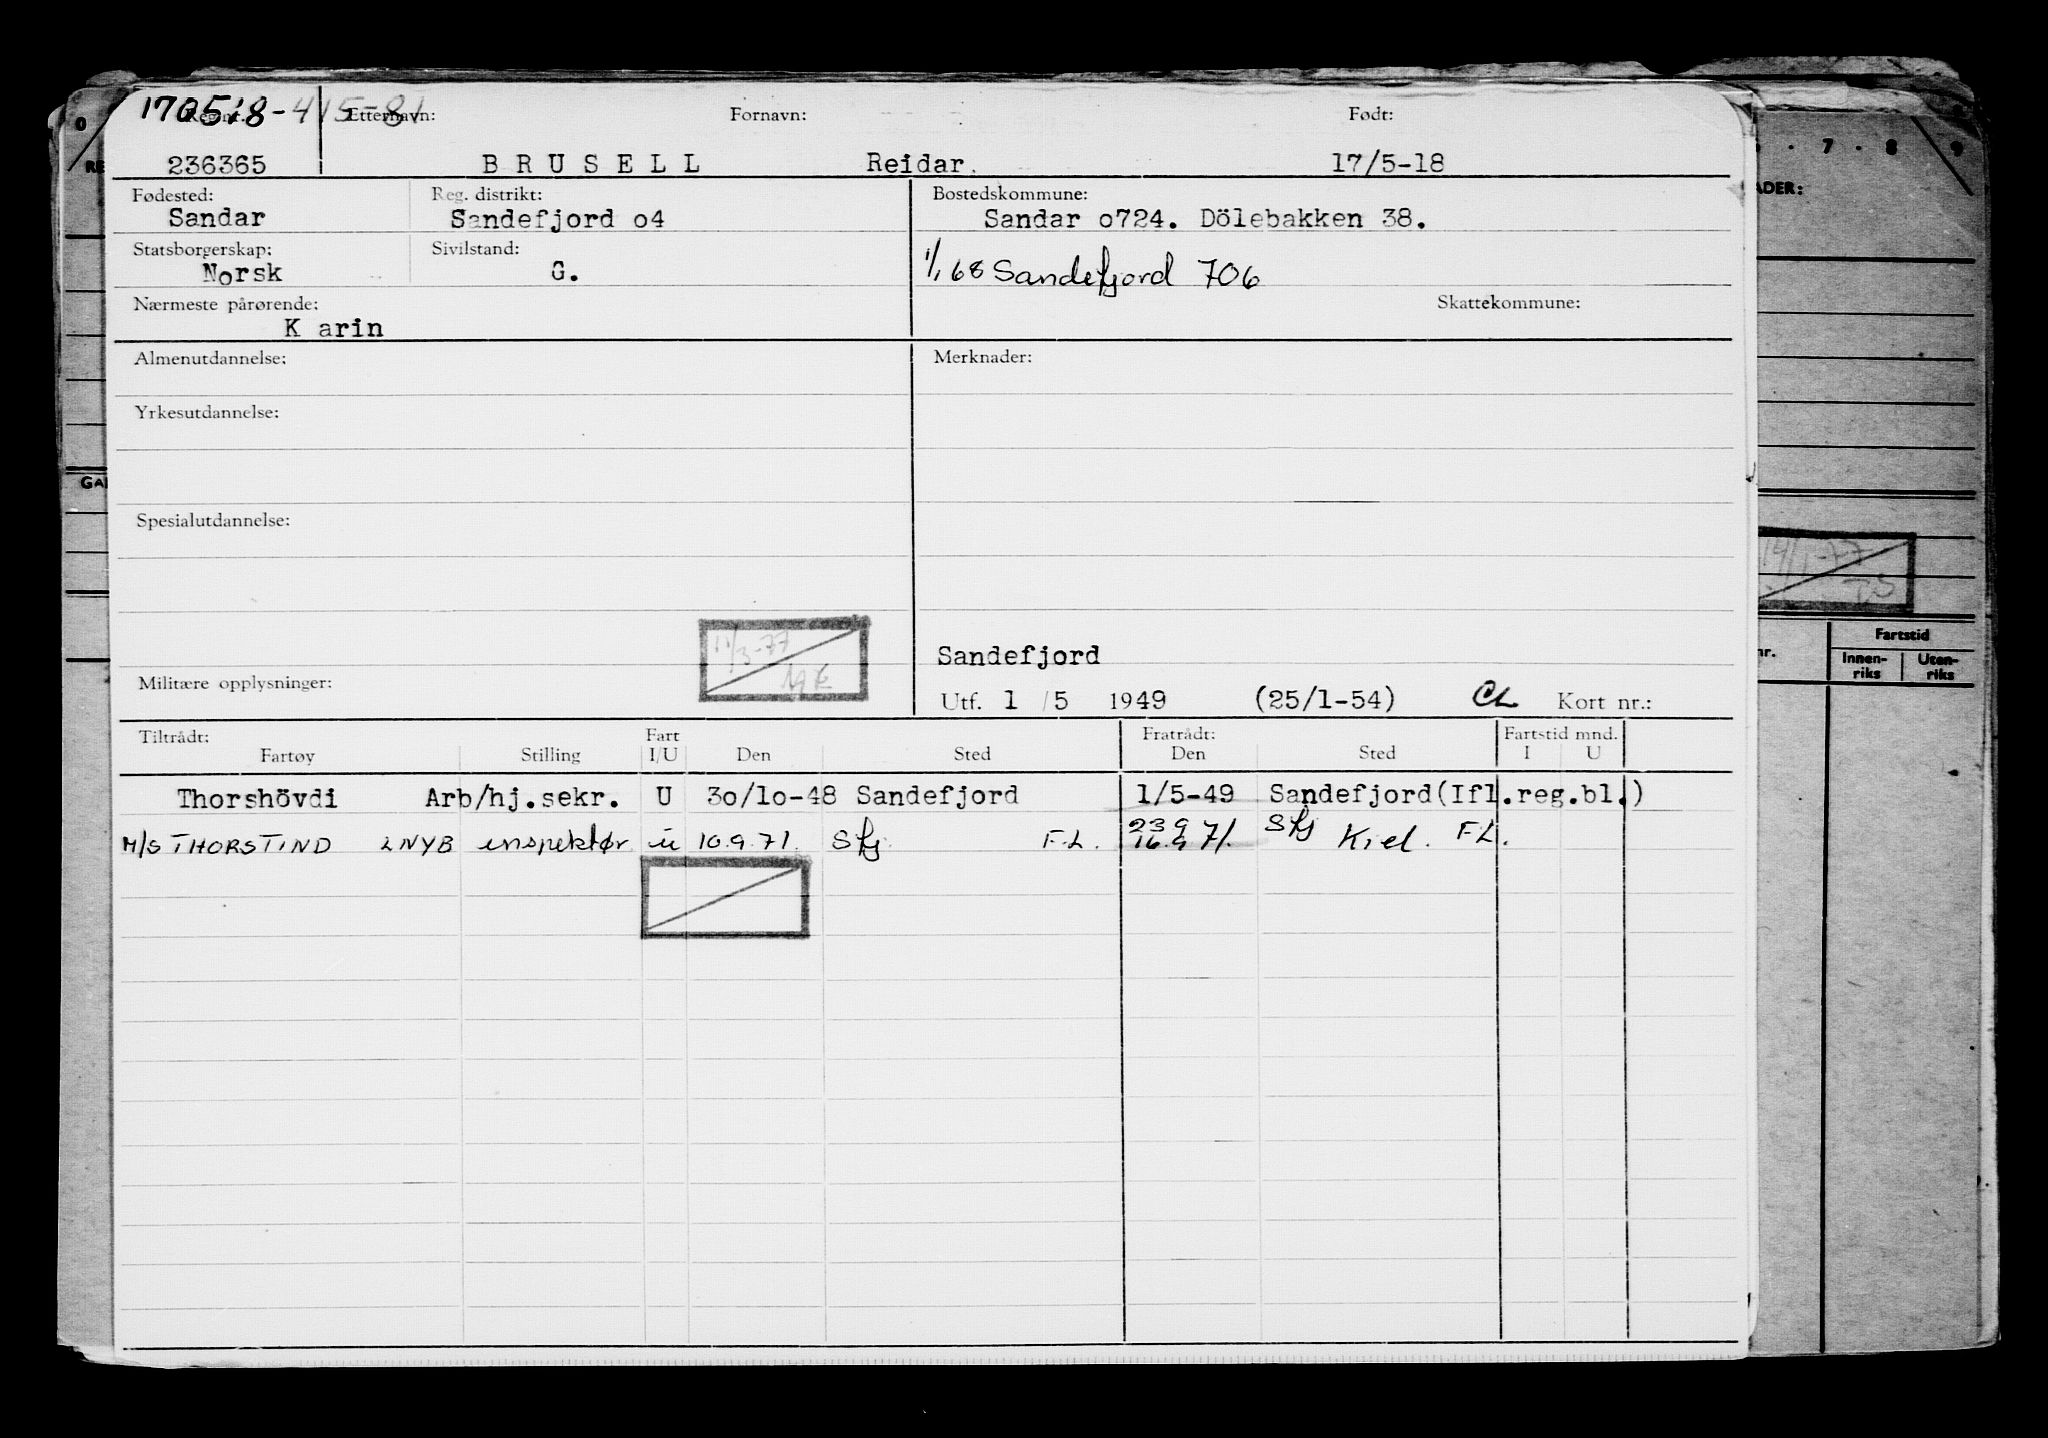 170518-415-81
Reg.nr. Etternavn: Fornavn: Født:
236365 BRUSELL Reidar. 17/5-18
Fødested: Reg. distrikt: Bostedskommune:
Sandar Sandefjord o4 Sandar o724. Dölebakken 38.
Statsborgerskap: Sivilstand:
Norsk G. 1/1 68 Sandefjord 706
Nærmeste pårørende: Skattekommune:
K arin
Almenutdannelse: Merknader:
Yrkesutdannelse:
Spesialutdannelse:
11/3-77
Sandefjord
Militære opplysninger:
Utf. 1 /5 1949 (25/1-54) CL Kort nr.:
Tiltrådt: Fart Fratrådt: Fartstid mnd.
Fartøy Stilling I/U Den Sted Den Sted I U
Thorshövdi Arb/hj.sekr. U 3o/1o-48 Sandefjord 1/5-49 Sandefjord(Ifl.reg.bl.)
23 9 Sfj
M/S THORSTIND LNYB inspektør u 10.9.71. Sfj F.L. 16.9 71. Kiel. F.L.
0
RE
GA
· 7 · 8 9
ADER:
14/1-77
TS
Fartstid
nr. Innen-riks Uten-riks